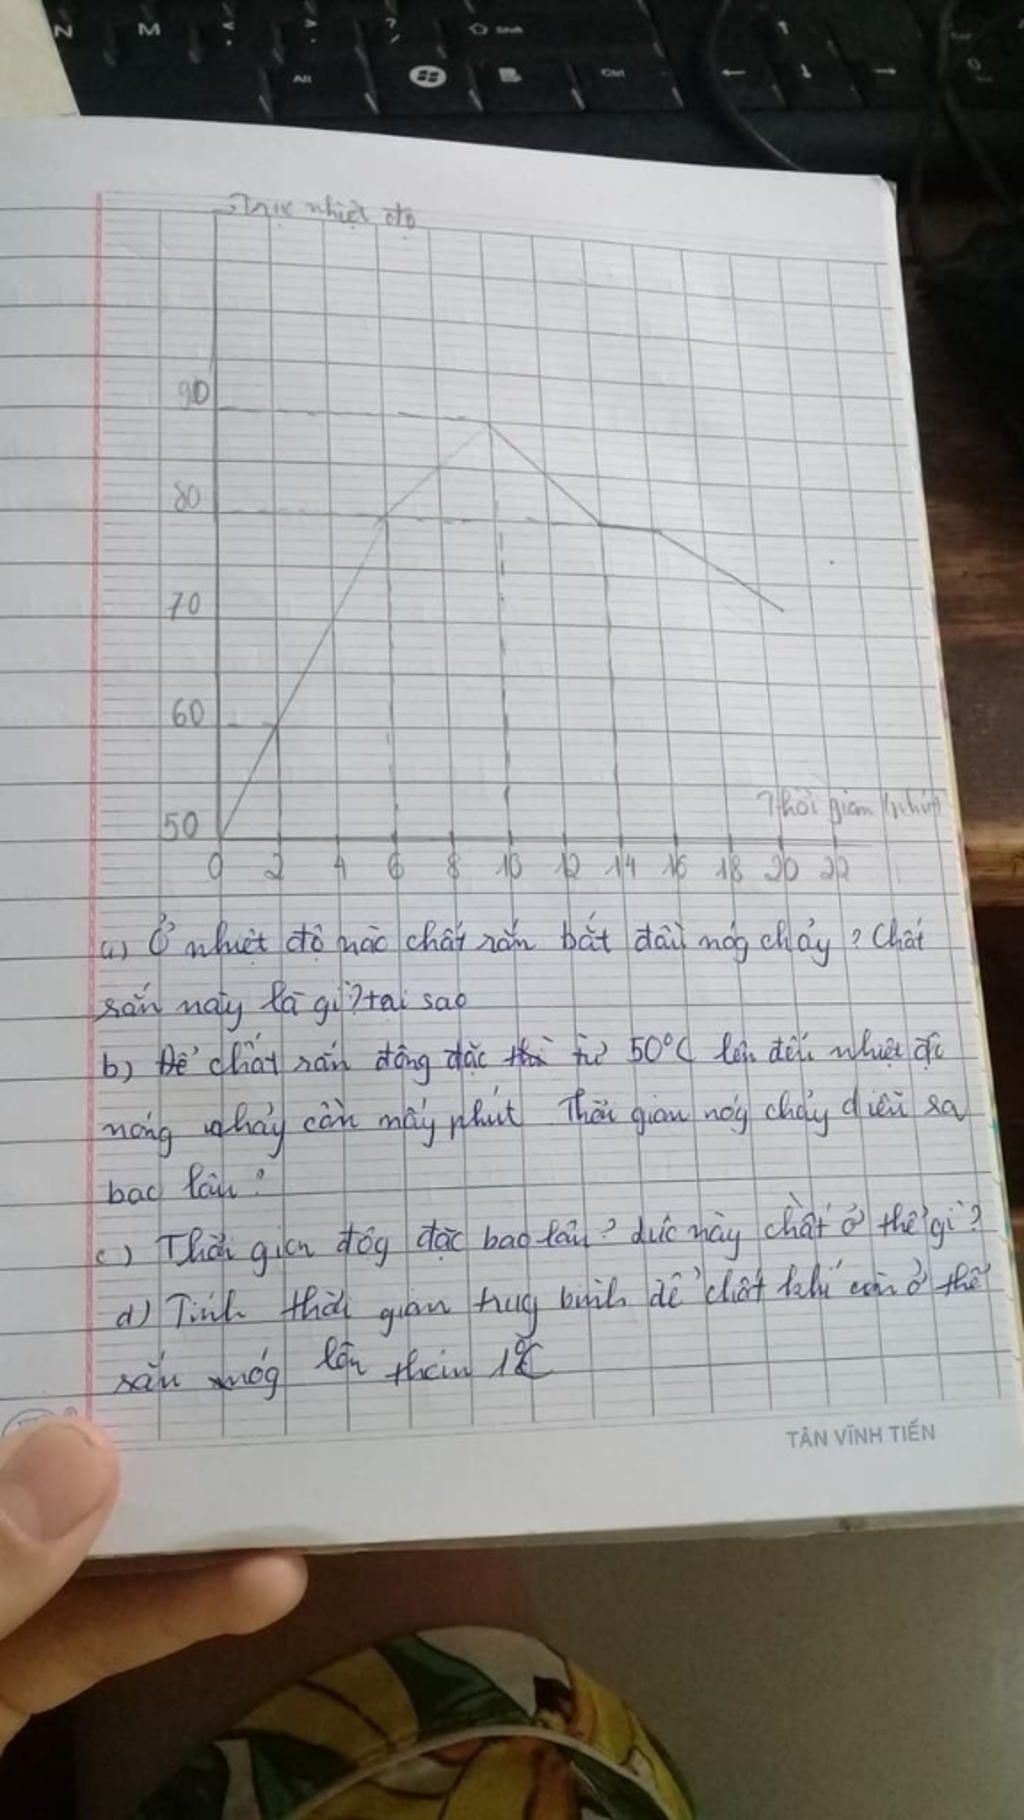 N M < > ? Shift
Alt Ctrl ← ↓ →
Trục nhiệt độ
90
80
70
60
50
Thời gian (phút)
0 2 4 6 8 10 12 14 16 18 20 22
a) Ở nhiệt độ nào chất rắn bắt đầu nóg chảy? Chất
rắn này là gì? tại sao
b) Để chất rắn đông đặc từ 50°C lên đến nhiệt độ
nóng chảy cần mấy phút Thời gian nóg chảy diễn ra
bao lâu?
c) Thời gian đôg đặc bao lâu? lúc này chất ở thể gì?
d) Tính thời gian trug bình để chất khi còn ở thể
rắn nóg lên thêm 1°C
TÂN VĨNH TIẾN